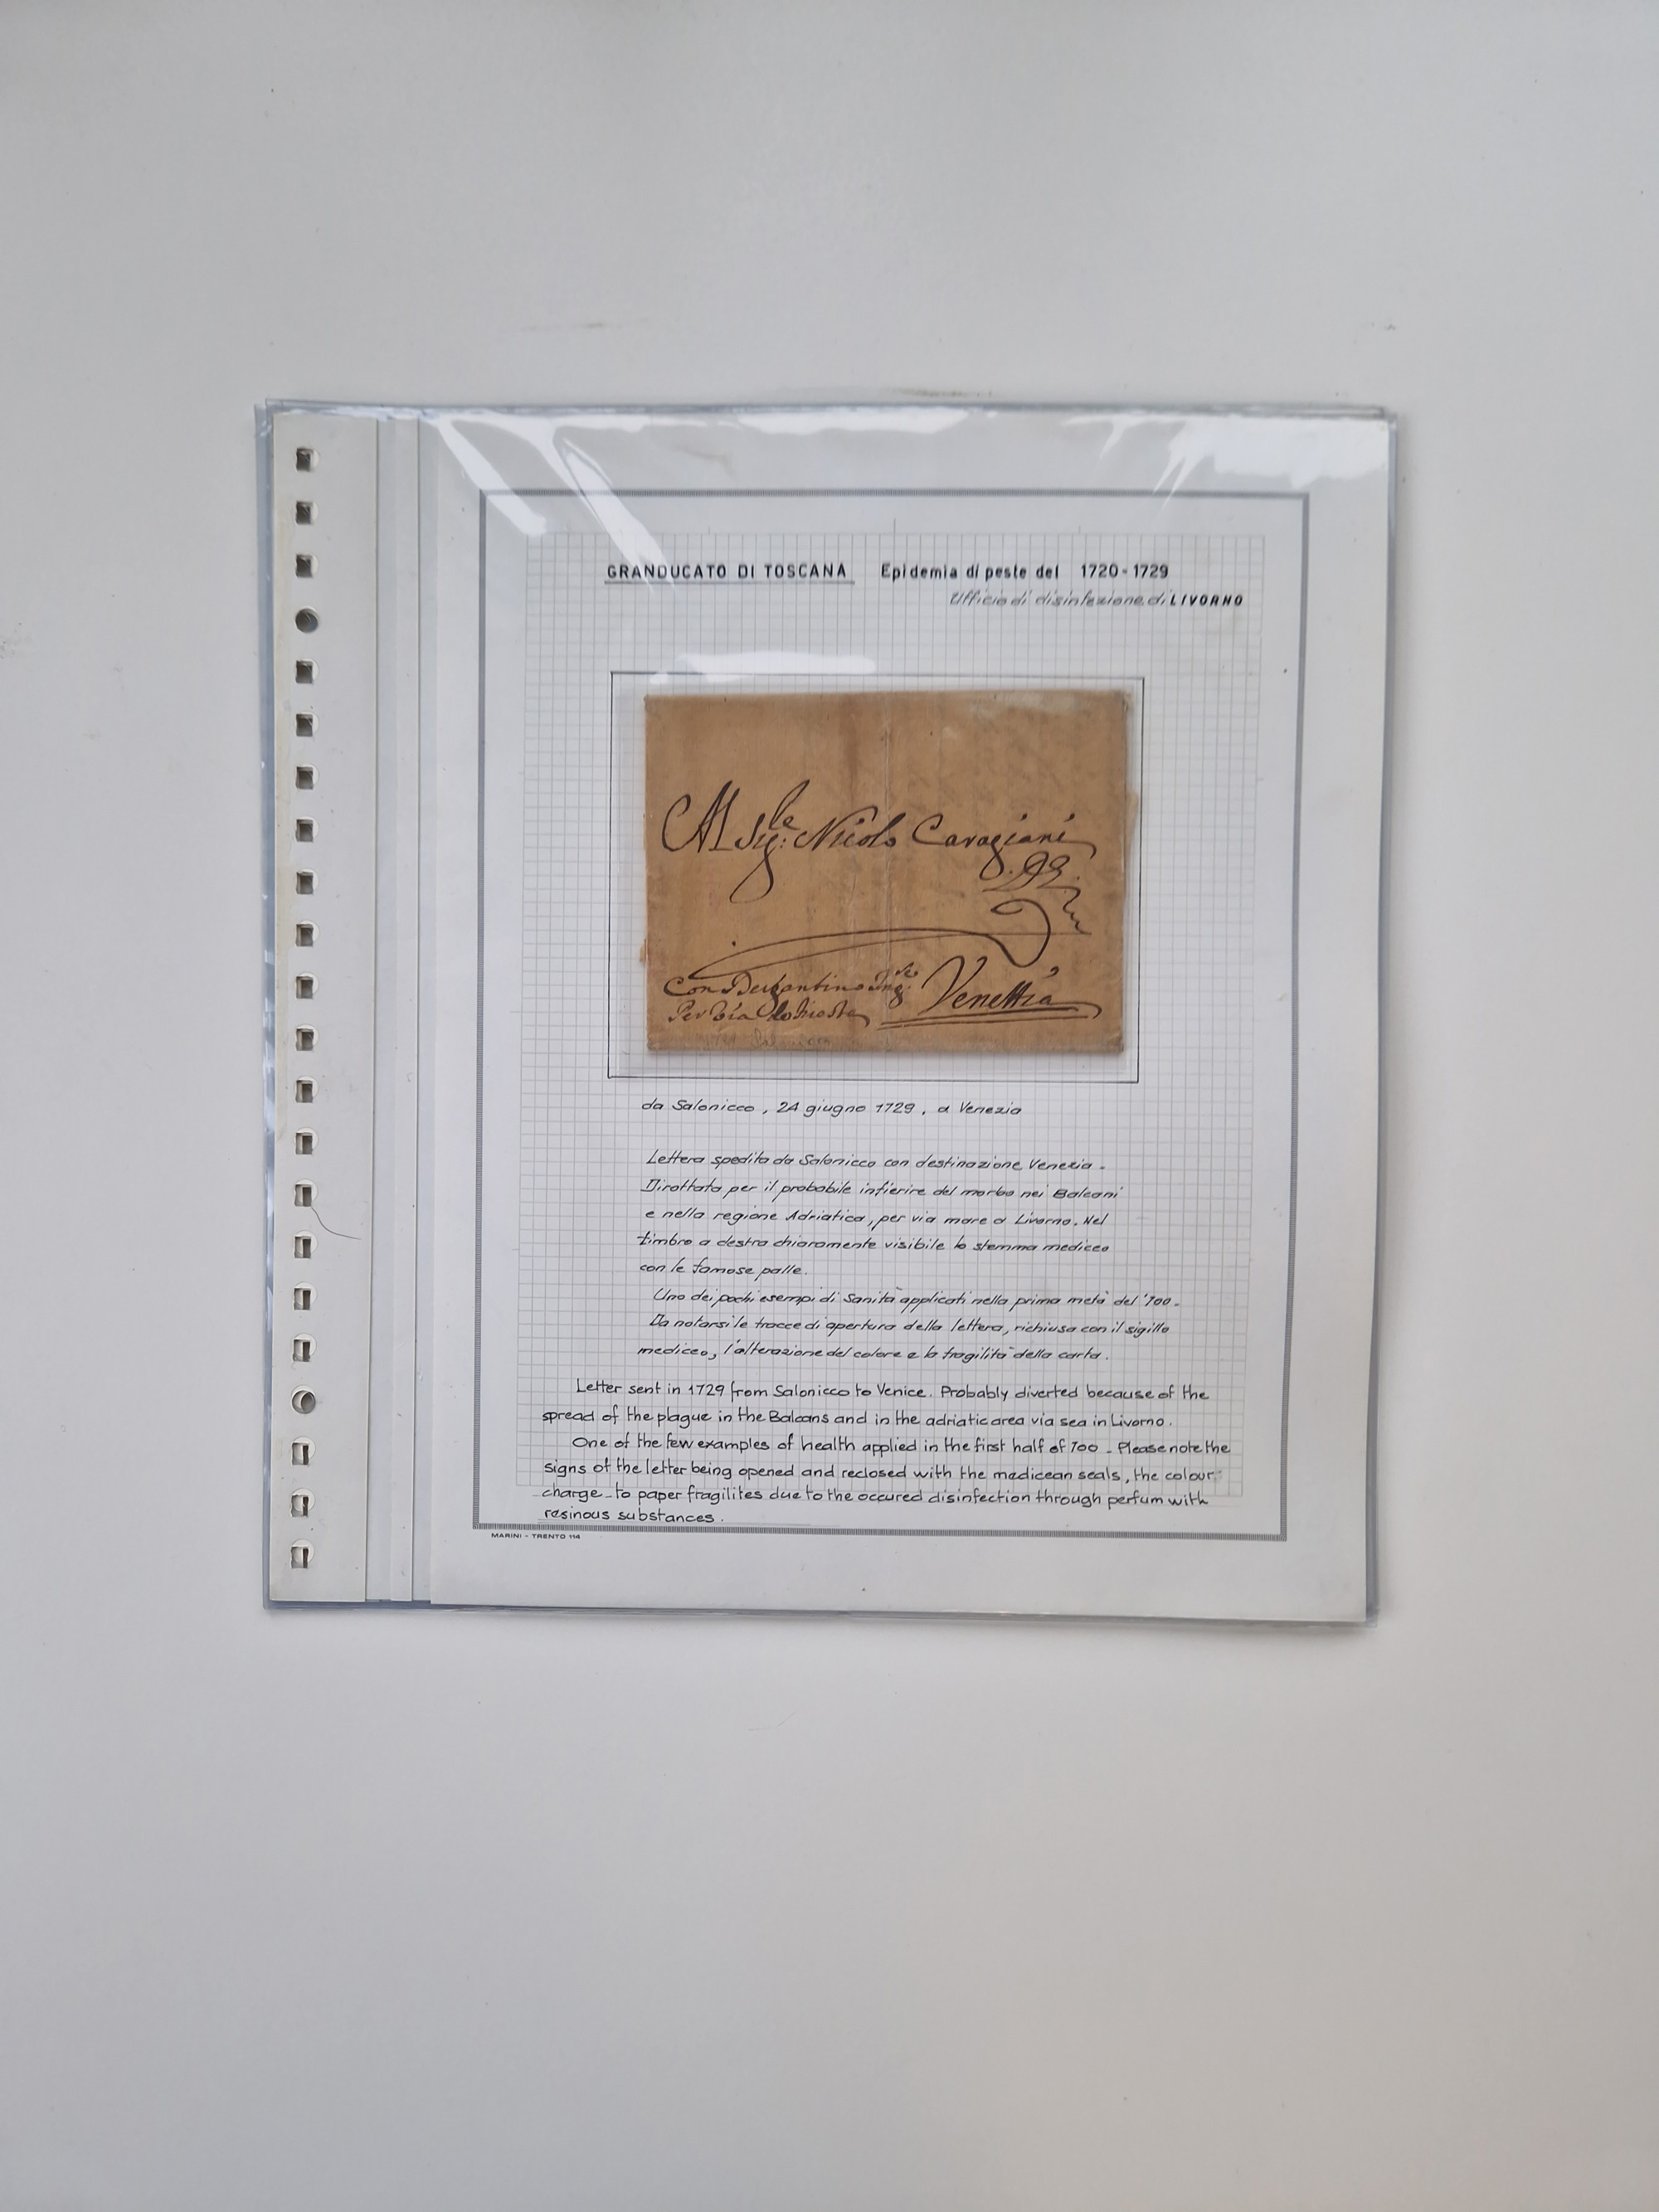 GRANDUCATO DI TOSCANA Epidemia di peste del 1720-1729
Ufficio di disinfezione di LIVORNO
Al Sig:le Nicolo Caragiani
Con Bergantino Ing:le Venettia
Per Via
da Salonicco, 24 giugno 1729, a Venezia
Lettera spedita da Salonicco con destinazione Venezia.
Dirottata per il probabile infierire del morbo nei Balcani
e nella regione Adriatica, per via mare a Livorno. Nel
timbro a destra chiaramente visibile lo stemma mediceo
con le famose palle.
Uno dei pochi esempi di Sanità applicati nella prima metà del '700.
Da notarsi le tracce di apertura della lettera, richiusa con il sigillo
mediceo, l'alterazione del colore e la fragilità della carta.
Letter sent in 1729 from Salonicco to Venice. Probably diverted because of the
spread of the plague in the Balcans and in the adriatic area via sea in Livorno.
One of the few examples of health applied in the first half of 700 - Please note the
signs of the letter being opened and reclosed with the medicean seals, the colour
charge to paper fragilites due to the occured disinfection through perfum with
resinous substances.
MARINI - TRENTO 114